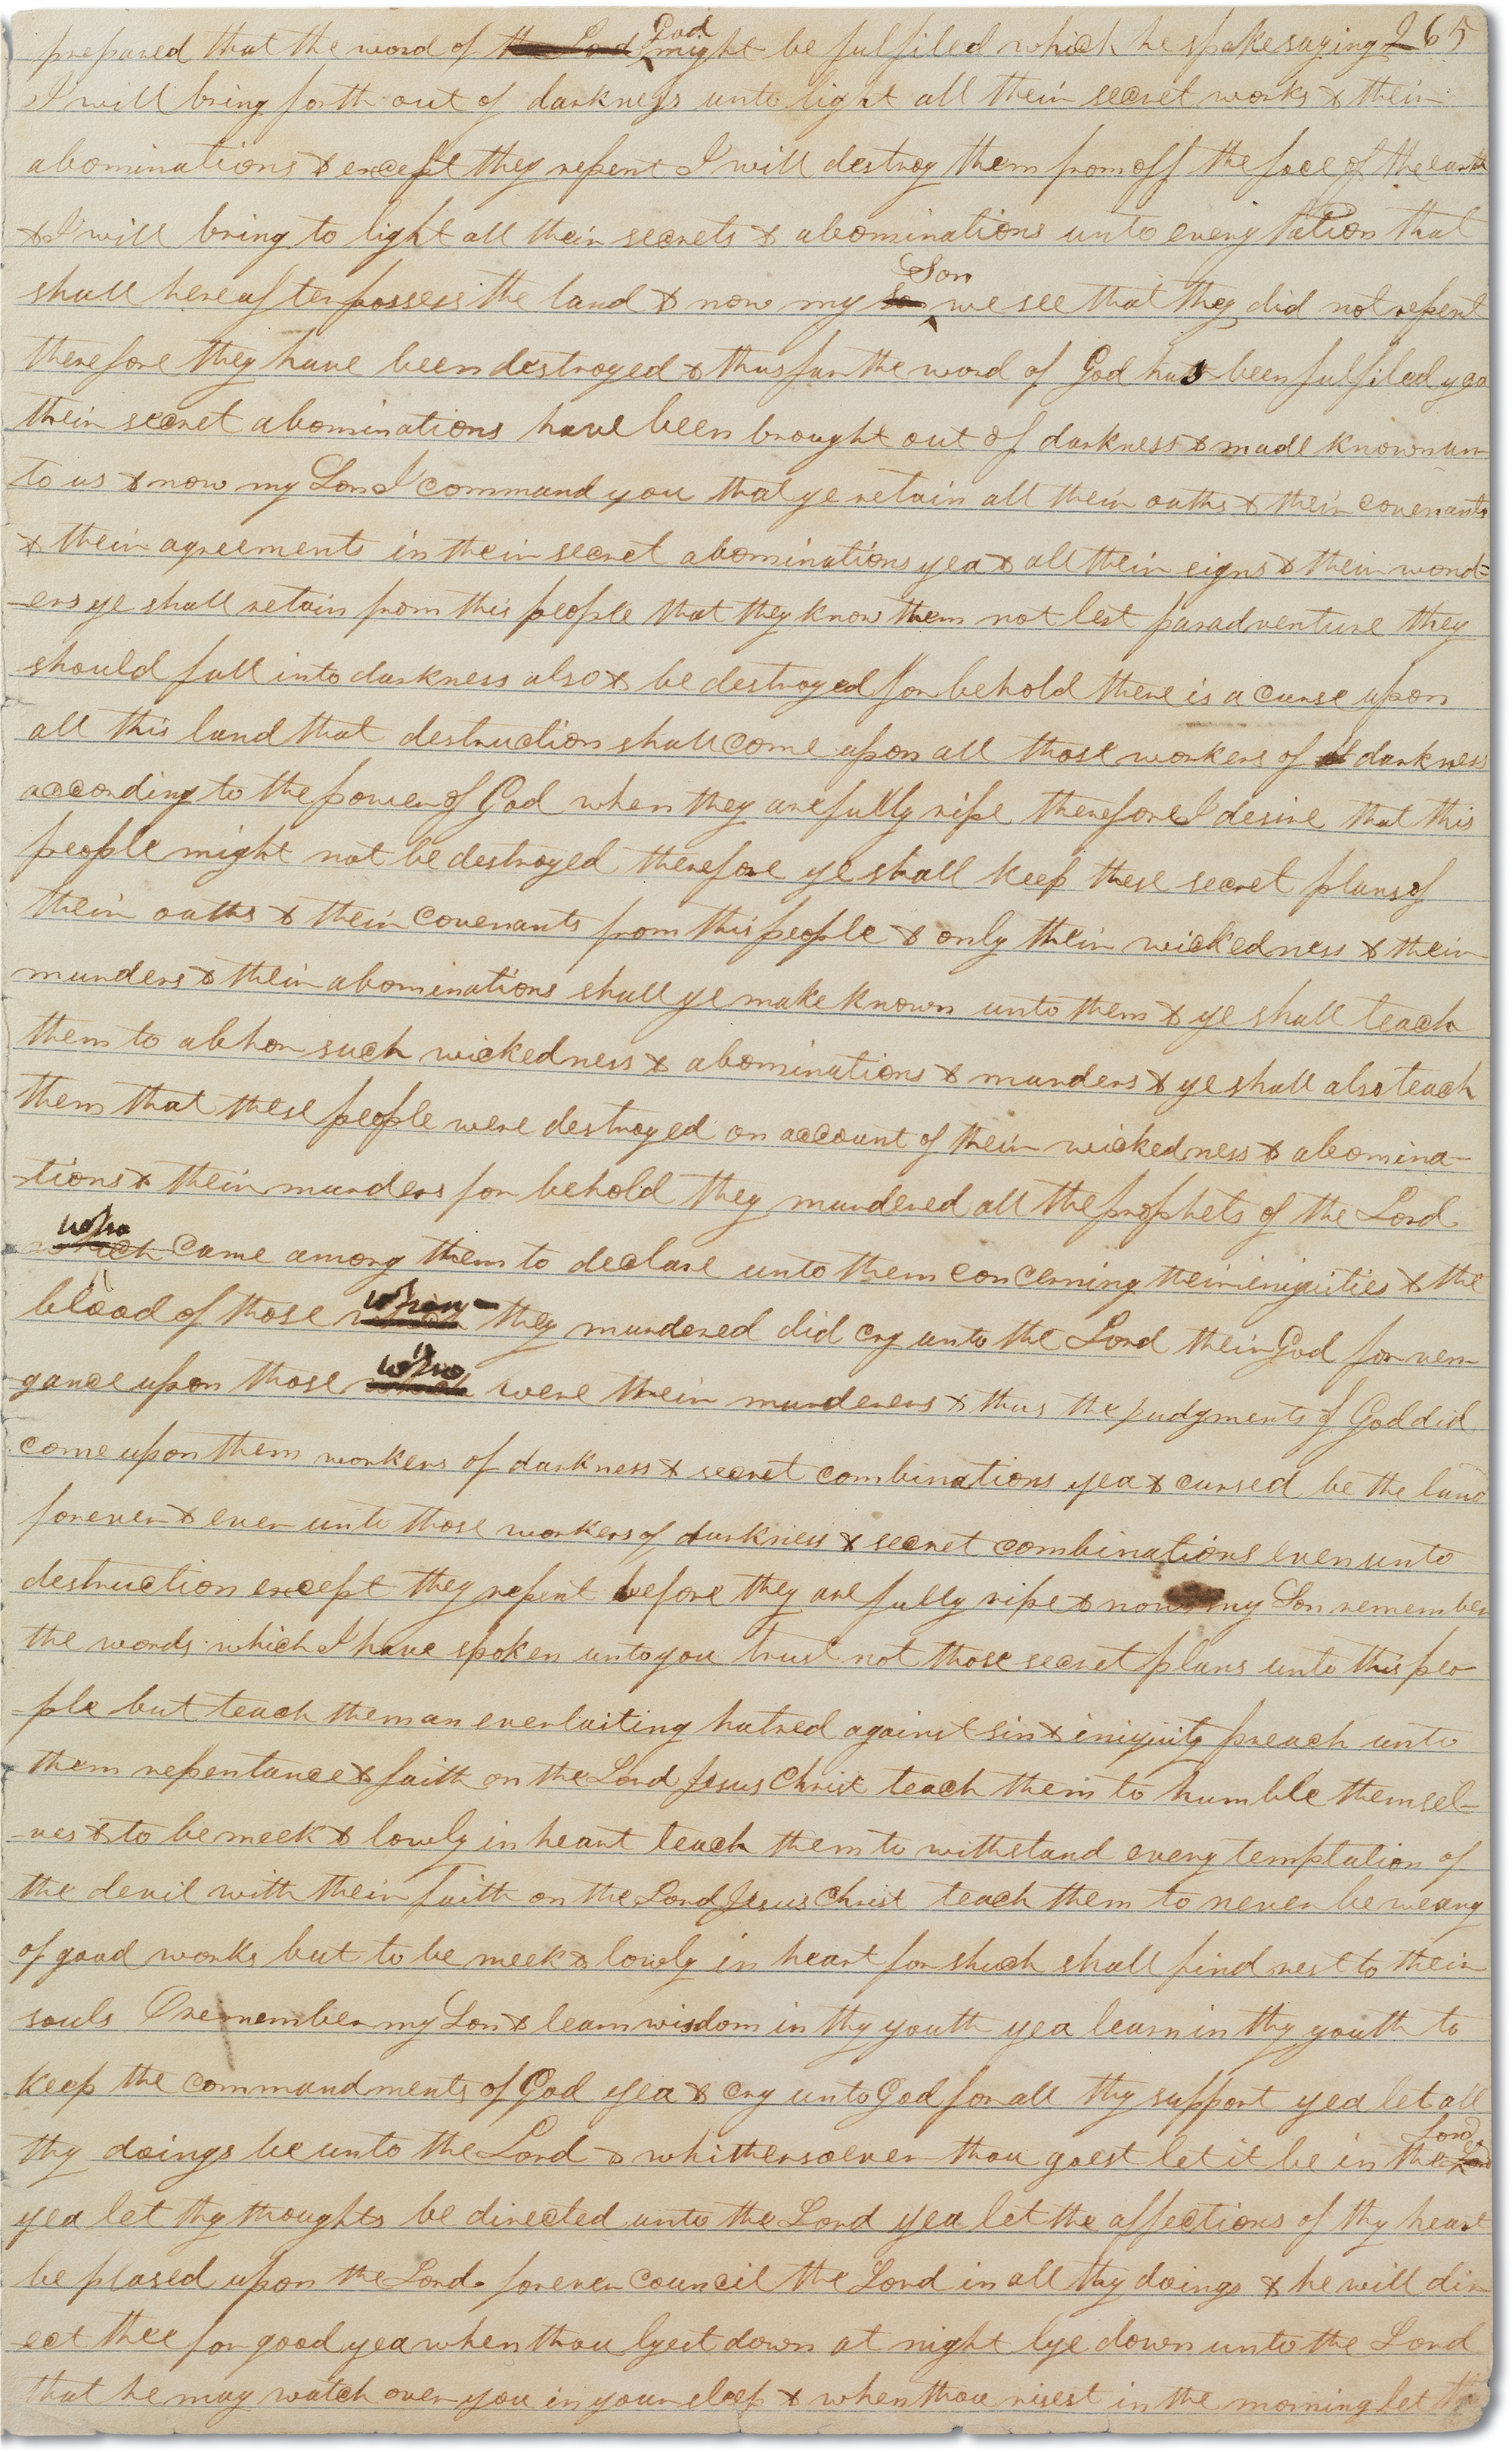 prepared that the word of the Lord God might be fulfiled which he spake saying 265
I will bring forth out of darkness unto light all their secret works & their
abominations & except they repent I will destroy them from off the face of the earth
& I will bring to light all their secrets & abominations unto every Nation that
shall hereafter possess the land & now my so Son we see that they did not repent
therefore they have been destroyed & thus far the word of God has been fulfiled yea
their secret abominations have been brought out of darkness & made known un-
to us & now my Son I command you that ye retain all their oaths & their covenants
& their agreements in their secret abominations yea & all their signs & their wond=
-ers ye shall retain from this people that they know them not lest paradventure they
should fall into darkness also & be destroyed for behold there is a curse upon
all this land that destruction shall come upon all those workers of d darkness
according to the power of God when they are fully ripe therefore I desire that this
people might not be destroyed therefore ye shall keep these secret plans of
their oaths & their covenants from this people & only their wickedness & their
murders & their abominations shall ye make known unto them & ye shall teach
them to abhor such wickedness & abominations & murders & ye shall also teach
them that these people were destroyed on account of their wickedness & abomina-
-tions & their murders for behold they murdered all the prophets of the Lord
who which came among them to declare unto them concerning their iniquities & the
blood of those which whom they murdered did cry unto the Lord their God for ven-
gance upon those which who were their murderers & thus the judgments of God did
come upon them workers of darkness & secret combinations yea & cursed be the land
forever & ever unto those workers of darkness & secret combinations even unto
destruction except they repent before they are fully ripe & now my Son remember
the words which I have spoken unto you trust not those secret plans unto this peo-
-ple but teach them an everlaiting hatred against sin & iniquity preach unto
them repentance & faith on the Lord Jesus Christ teach them to humble themsel-
-ves & to be meek & lowly in heart teach them to withstand every temptation of
the devil with their faith on the Lord Jesus Christ teach them to never be weary
of good works but to be meek & lowly in heart for shuch shall find rest to their
souls O remember my Son & learn wisdom in thy youth yea learn in thy youth to
keep the commandments of God yea & cry unto God for all thy support yea let all
thy doings be unto the Lord & whithersoever thou goest let it be in the Lord Lord
yea let thy thoughts be directed unto the Lord yea let the affections of thy heart
be plased upon the Lord forever council the Lord in all thy doings & he will dir
-ect thee for good yea when thou lyest down at night lye down unto the Lord
that he may watch over you in your sleep & when thou risest in the morning let